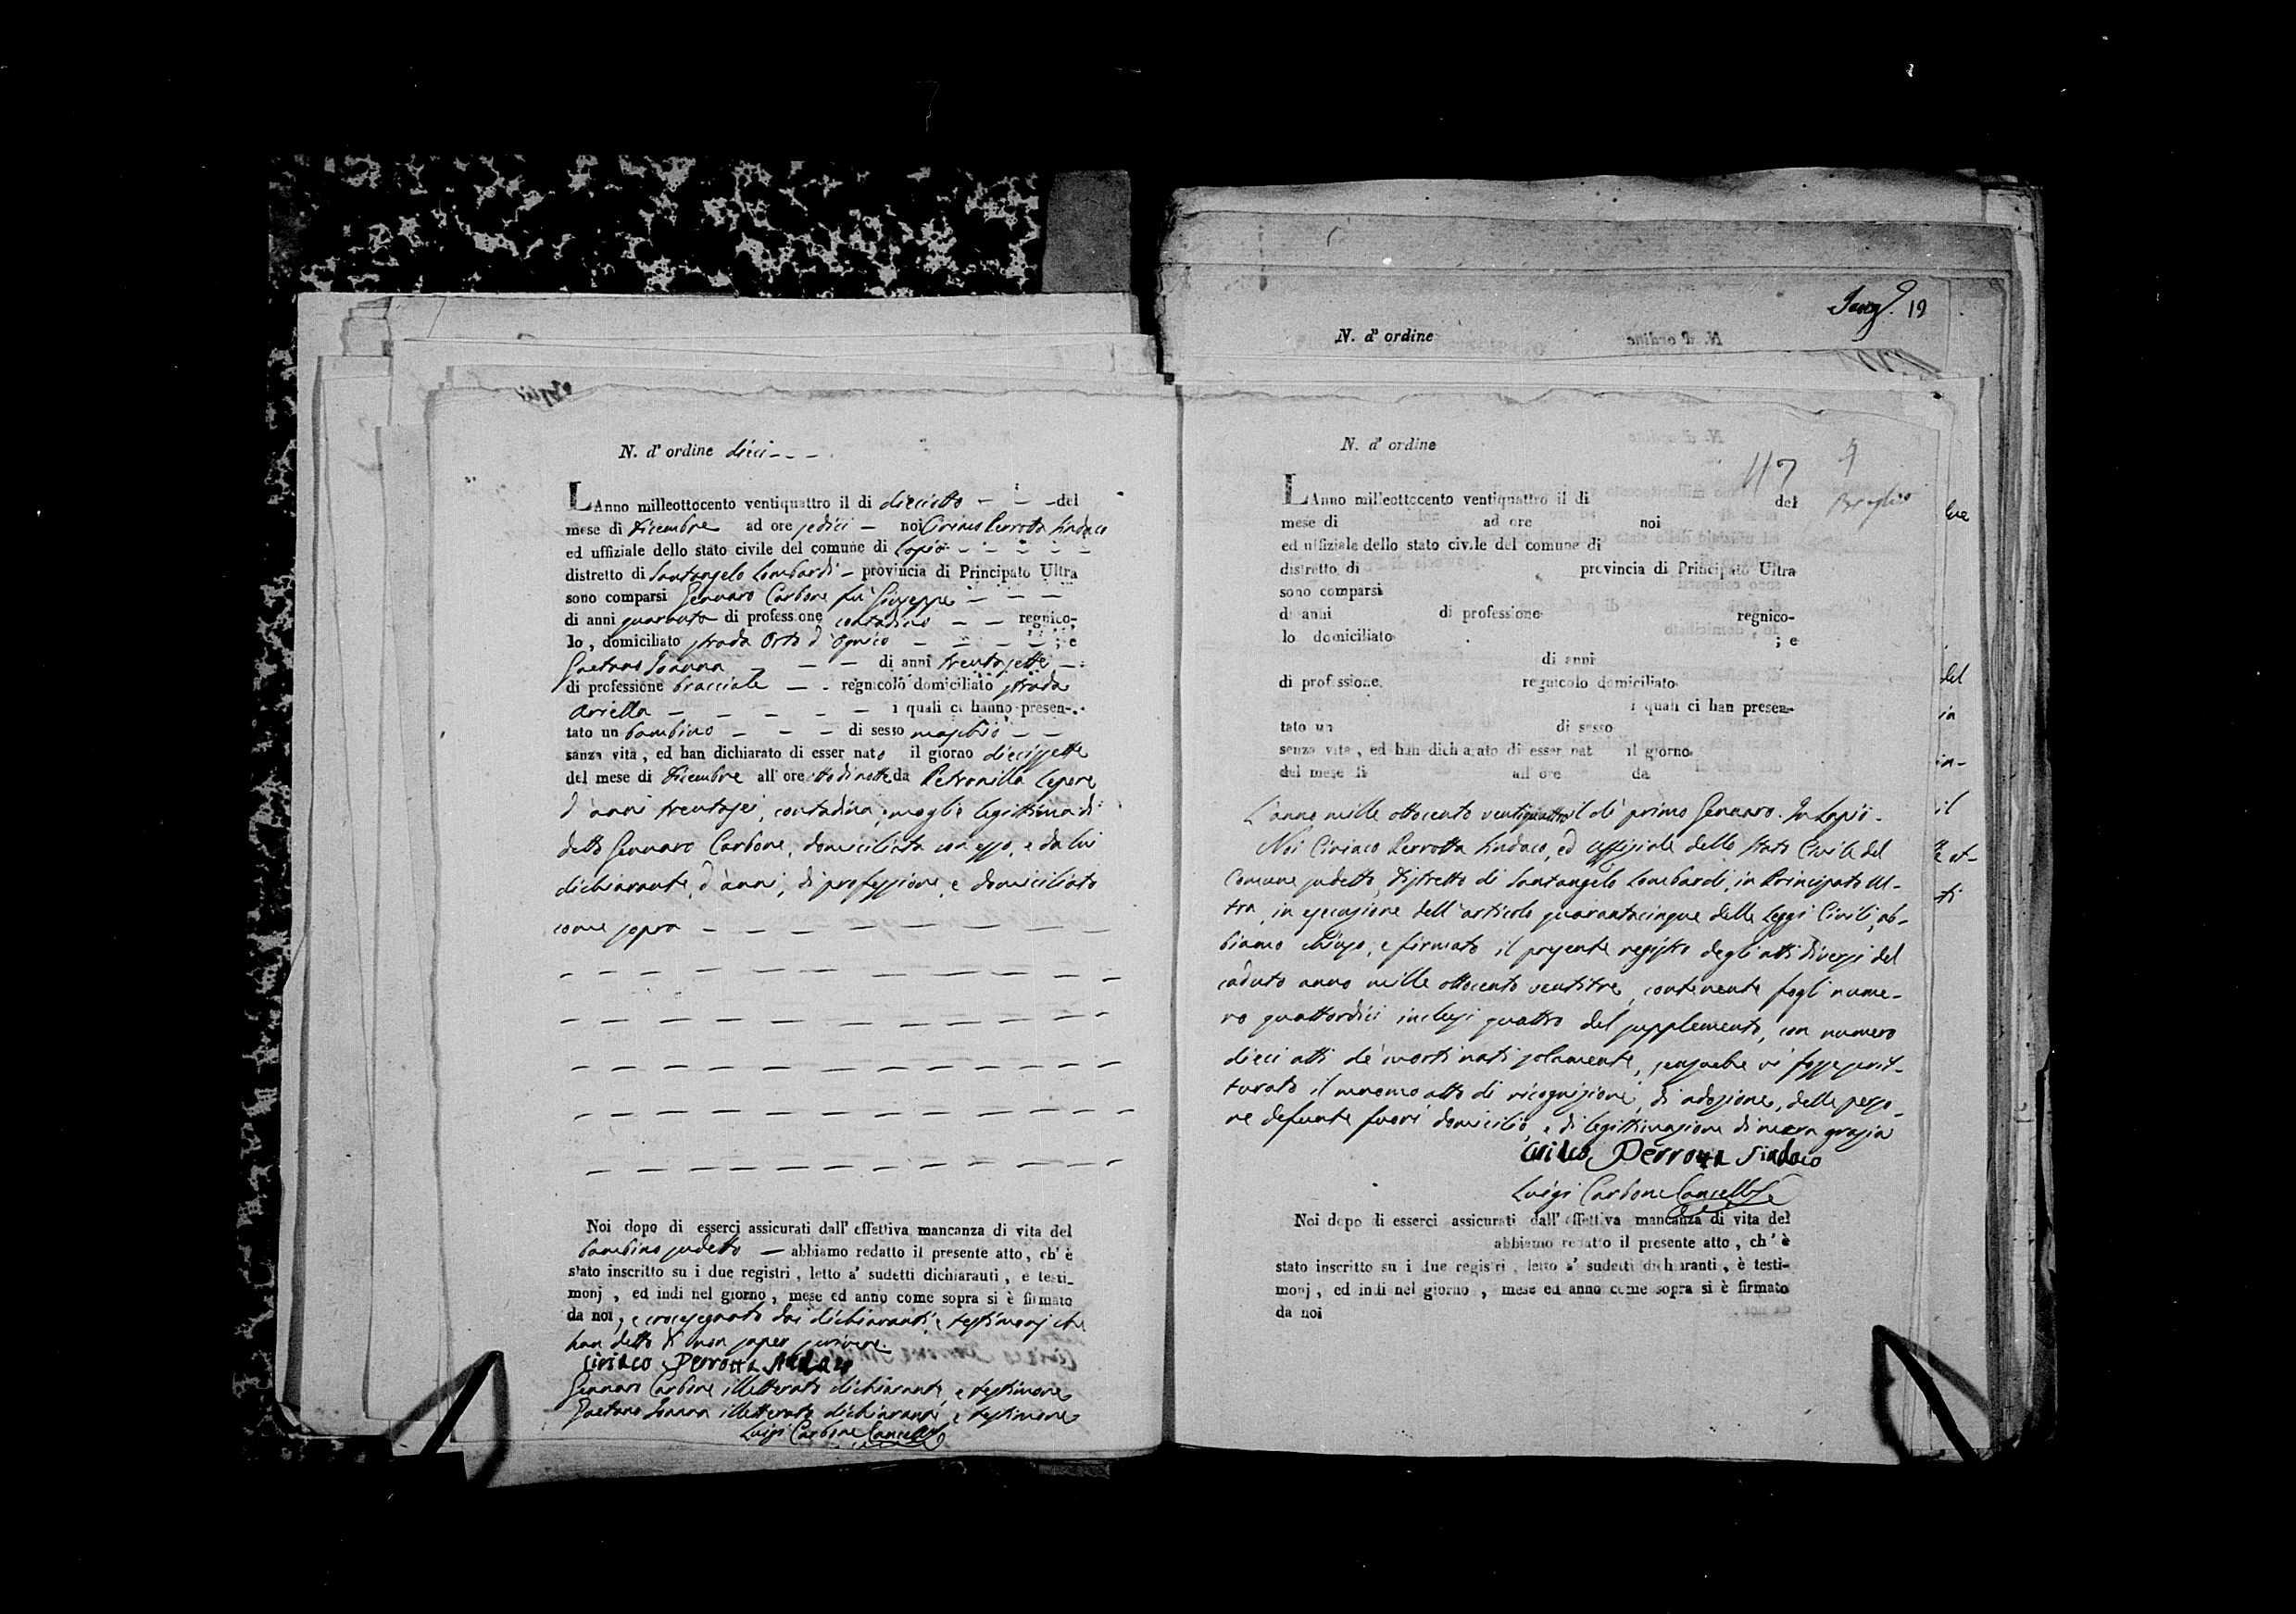 N. d' ordine dieci
L'Anno milleottocento ventiquattro il di dieciotto - - - del
mese di Dicembre ad ore sedici - noi Ciriaco Perrotta Sindaco
ed uffiziale dello stato civile del comune di Lapio - - - - -
distretto di Santangelo Lombardi - provincia di Principato Ultra
sono comparsi Gennaro Carbone fu Giuseppe - - -
di anni quaranta di professione contadino - - regnico-
lo , domiciliato strada Orto d' - - - - ; e
Gaetano Ioanna - - - di anni trentasette -
di professione bracciale - - regnicolo domiciliato strada
Ariella - - - - - i quali ci hanno presen-
tato un bambino - - - di sesso maschio - -
senza vita , ed han dichiarato di esser nato il giorno diecissette
del mese di Dicembre all' ore otto di notte da Petronilla Lepore
d'anni trentasei, contadina, moglie legittima di
detto Gennaro Carbone, domiciliata con esso, e da lui
dichiarante, d'anni, di professione, e domiciliato
come sopra - - - - - - - -
Noi dopo di esserci assicurati dall' effettiva mancanza di vita del
bambino sudetto - abbiamo redatto il presente atto , ch' è
stato inscritto su i due registri , letto a' sudetti dichiaranti , e testi-
monj , ed indi nel giorno , mese ed anno come sopra si è firmato
da noi, e crocesegnato dai dichiaranti, e testimonj che
han detto di non saper scrivere.
Ciriaco Perrotta Sindaco
Gennaro Carbone illetterato dichiarante, e testimone
Gaetano Ioanna illetterato dichiarante, e testimone
Luigi Carbone Cancell.
19
N. d' ordine
N. d' ordine
117
L'Anno milleottocento ventiquattro il di del
mese di ad ore noi
ed uffiziale dello stato civile del comune di
distretto di provincia di Principato Ultra
sono comparsi
di anni di professione regnico-
lo domiciliato ; e
di anni
di professione regnicolo domiciliato
i quali ci han presen-
tato un di sesso
senza vita , ed han dichiarato di esser nat il giorno
del mese di all ore da
L'anno mille ottocento ventiquattro il dì primo Gennaro. In Lapio.
Noi Ciriaco Perrotta Sindaco, ed Uffiziale dello Stato Civile del
Comune sudetto, Distretto di Santangelo Lombardi, in Principato Ul-
tra, in esecuzione dell'articolo quarantacinque delle Leggi Civili, ab-
biamo chiuso, e firmato il presente registro degli atti diversi del
caduto anno mille ottocento ventitre, contenente fogli nume-
ro quattordici inclusi quattro del supplemento, con numero
dieci atti de' morti nati solamente, senzache vi fosse
il atto di ricognizione, di adozione, delle perso-
ne defunte fuori domicilio, e di legittimazione di mera grazia
Ciriaco Perrotta Sindaco
Luigi Carbone Cancell.
Noi dopo di esserci assicurati dall' effettiva mancanza di vita del
abbiamo redatto il presente atto , ch' è
stato inscritto su i due registri , letto a' sudetti dichiaranti , è testi-
monj , ed indi nel giorno , mese ed anno come sopra si è firmato
da noi